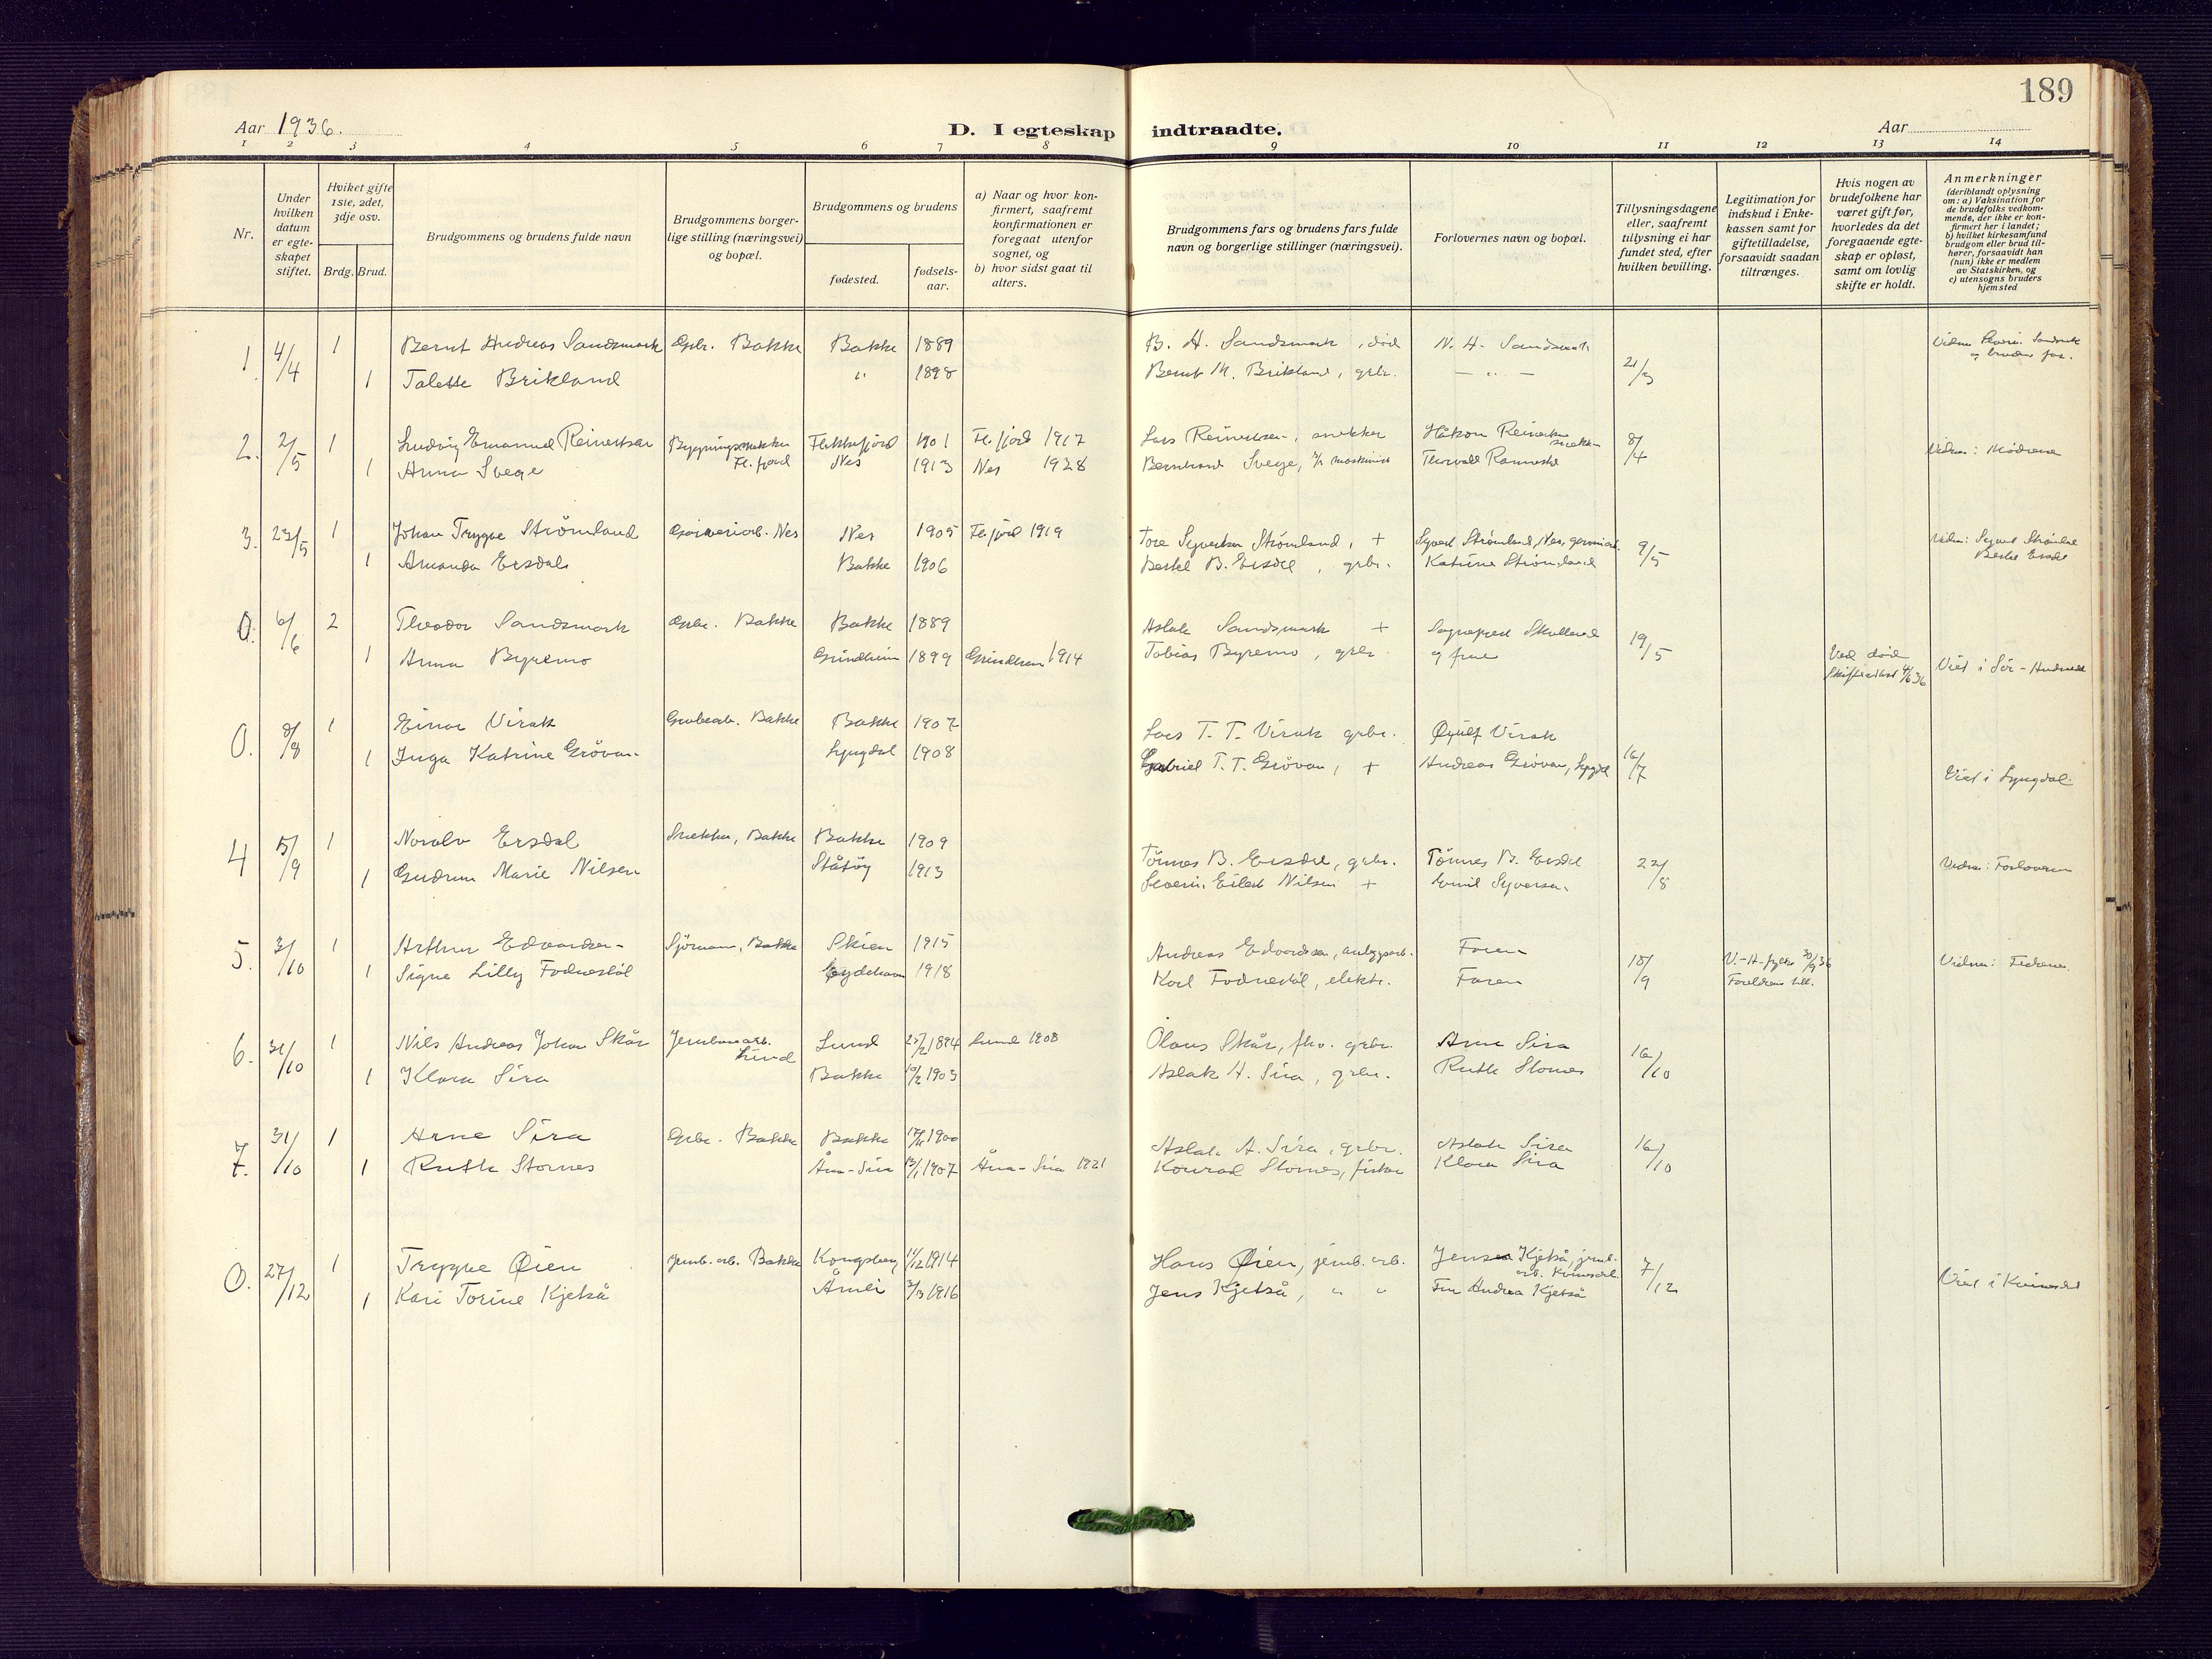 189
Aar 1936.
D. I egteskap indtraadte.
Aar
1 2 3 4 5 6 7 8 9 10 11 12 13 14
Nr.
Under hvilken datum er egte-skapet stiftet.
Hviket gifte 1ste, 2det, 3dje osv.
Brdg. Brud.
Brudgommens og brudens fulde navn
Brudgommens borger-lige stilling (næringsvei) og bopæl.
Brudgommens og brudens
fødested.
fødsels-aar.
a) Naar og hvor kon-firmert, saafremt konfirmationen er foregaat utenfor sognet, og
b) hvor sidst gaat til alters.
Brudgommens fars og brudens fars fulde navn og borgerlige stillinger (næringsvei).
Forlovernes navn og bopæl.
Tillysningsdagene eller, saafremt tillysning ei har fundet sted, efter hvilken bevilling.
Legitimation for indskud i Enke-kassen samt for giftetilladelse, forsaavidt saadan tiltrænges.
Hvis nogen av brudefolkene har været gift før, hvorledes da det foregaaende egte-skap er opløst, samt om lovlig skifte er holdt.
Anmerkninger
(deriblandt oplysning om: a) Vaksination for de brudefolks vedkom-mende, der ikke er kon-firmert her i landet; b) hvilket kirkesamfund brudgom eller brud til-hører, forsaavidt han (hun) ikke er medlem av Statskirken, og c) utensogns bruders hjemsted
1. 4/4 1 Bernt Andreas Sandsmark Gbr. Bakke Bakke 1889 B. A. Sandsmark, død N. H. Sandsmark
1 Talette Brikland " 1898 Bernt M. Brikland, gbr. — " — 21/3
2. 2/5 1 Ludvig Emanuel Reinertsen Bygningssnekker Fl.fjord Flekkefjord 1901 Fl.fjord 1917 Lars Reinertsen, snekker Håkon Reinertsen snekker 8/4
1 Anna Svege Nes 1913 Nes 1928 Bernhard Svege, maskinist Thorvald Vidner: Mødrene
3. 23/5 1 Johan Trygve Strömland Garveriarb. Nes Nes 1905 Fl.fjord 1919 Tore Syvertsen Strömland, + Syvert Strömland, Nes, 9/5
1 Amanda Ersdal Bakke 1906 Bertel B. Ersdal, gbr. Katrine Strömland Vidner: Syvert Strömland Bertel Ersdal
0. 6/6 2 Theodor Sandsmark Gbr. Bakke Bakke 1889 Aslak Sandsmark + Sogneprest 19/5
1 Anna Byremo Grindheim 1899 Grindheim 1914 Tobias Byremo, gbr. og frue Ved død Skifteattest 4/6 36 Viet i Sör-Audnedal
0. 8/8 1 Einar Virak Grubearb. Bakke Bakke 1907 Lars T. T. Virak gbr. Øyulf Virak
1 Inga Katrine Grövan Lyngdal 1908 Gabriel T. T. Grövan, + Andreas Grövan, Lyngdal 16/7 Viet i Lyngdal.
4 5/9 1 Noralv Ersdal Snekker, Bakke Bakke 1909 Tönnes B. Ersdal, gbr. Tönnes B. Ersdal 22/8
1 Gudrun Marie Nilsen Ståtöy 1913 Severin Eilert Nilsen + Emil Syversen Vidner: Forloverne
5. 3/10 1 Arthur Edvardsen Sjömann, Bakke Skien 1915 Andreas Edvardsen, anleggsarb. Faren 18/9 V.-A. fylke 30/9 36
1 Signe Lilly Fodnestöl Eydehavn 1918 Karl Fodnestöl, elektr. Faren Foreldrene till. Vidner: Fedrene
6. 31/10 1 Nils Andreas Johan Skår Jernbanearb. Lund Lund 27/2 1894 Lund 1908 Olaus Skår, fhv. gbr. Arne Sira 16/10
1 Klara Sira Bakke 10/2 1903 Aslak A. Sira, gbr. Ruth Stornes
7. 31/10 1 Arne Sira Gbr. Bakke Bakke 1900 Aslak A. Sira, gbr. Aslak Sira 16/10
1 Ruth Stornes Åna-Sira 1907 Åna-Sira 1921 Konrad Stornes, fisker Klara Sira
0. 27/12 1 Trygve Øien Jernb. arb. Bakke Kongsberg 11/12 1914 Hans Øien, jernb. arb. Jens Kjetså, jernb. arb. Kvinesdal. 7/12
1 Kari Torine Kjetså Åmli 1916 Jens Kjetså, " " Fru Andrea Kjetså Viet i Kvinesdal